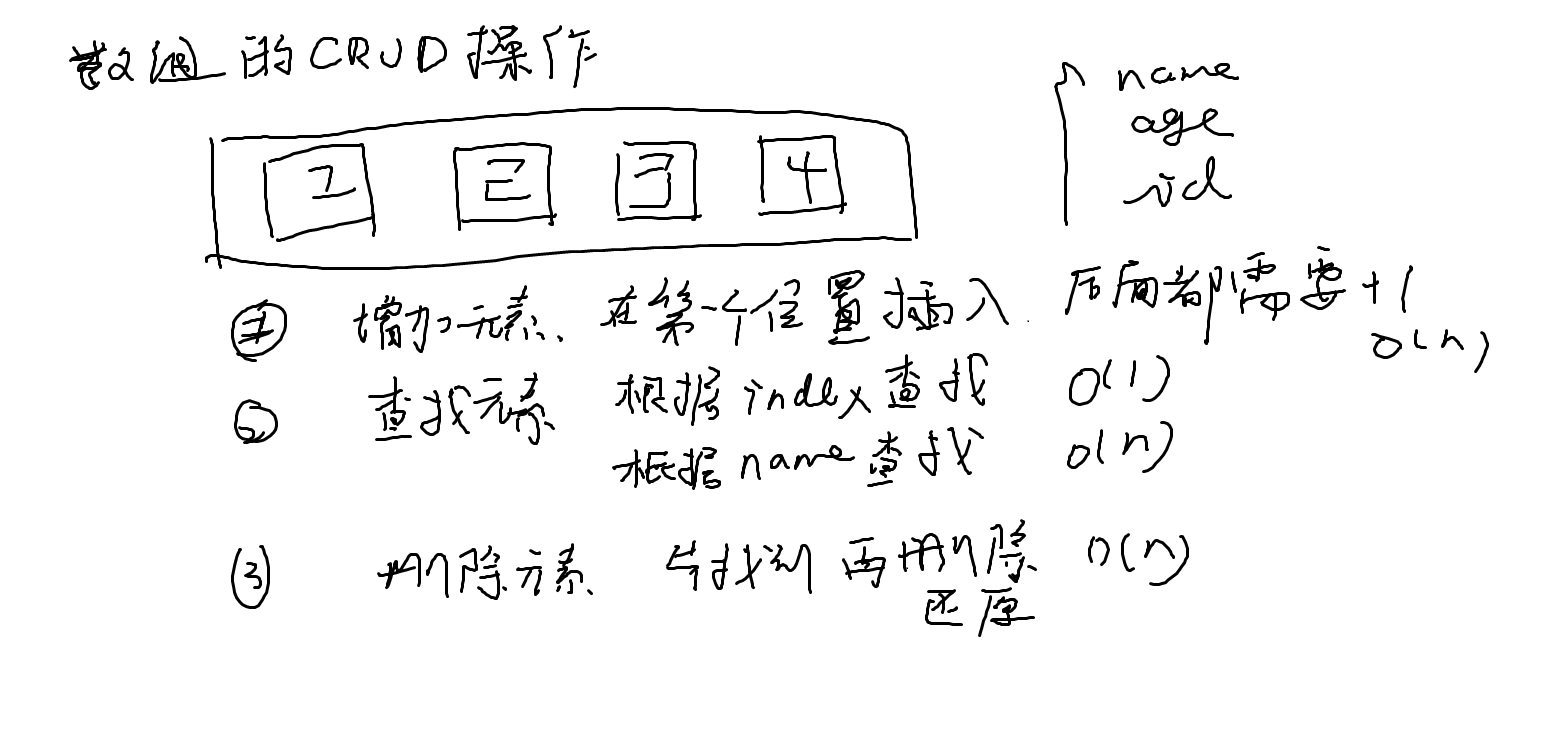 数组的CRUD操作
name
age
id
1 2 3 4
① 增加元素、在第一个位置插入. 后面都需要+1
O(n)
② 查找元素 根据index查找 O(1)
根据name查找 O(n)
③ 删除元素、先找到 再删除 O(n)
还原